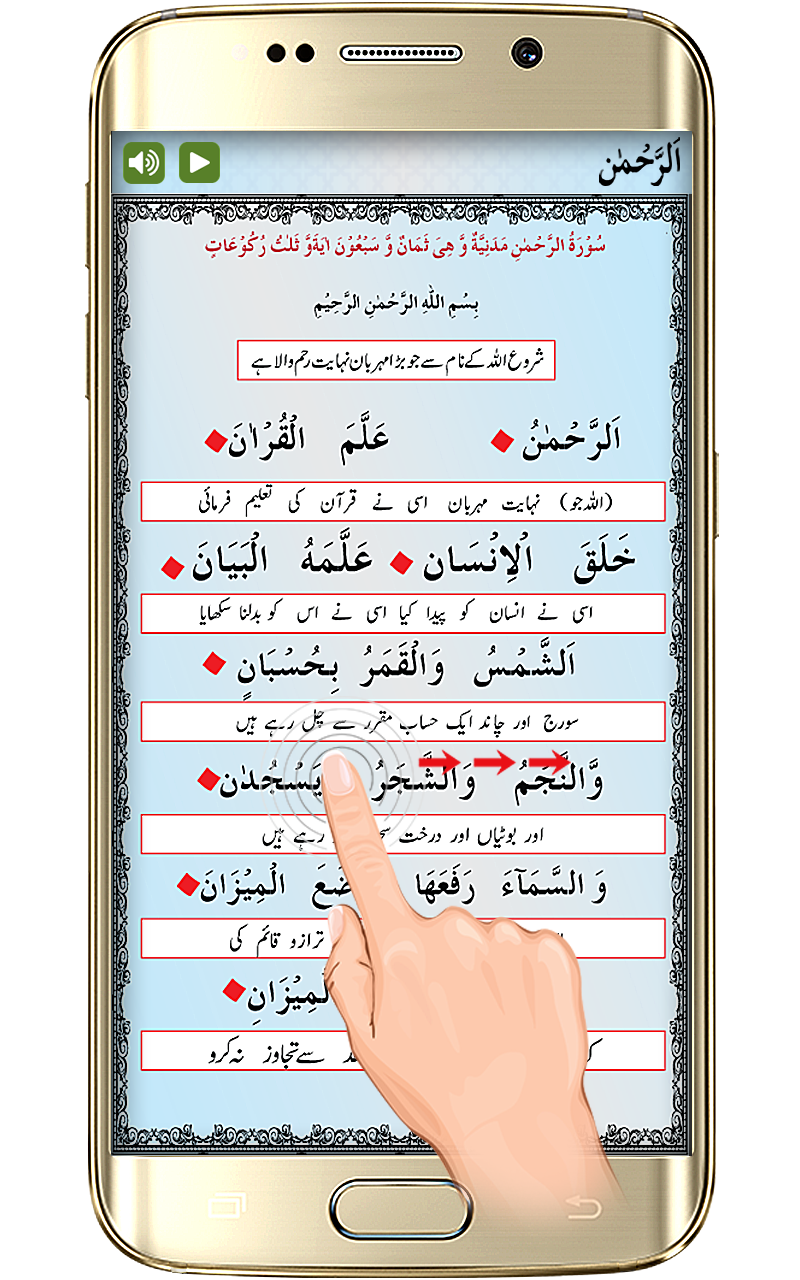 اَلرَّحْمٰن
سُوْرَةُ الرَّحْمٰنِ مَدَنِيَّةٌ وَّ هِىَ ثَمَانٌ وَّ سَبْعُوْنَ اٰيَةً وَّ ثَلٰثُ رُكُوْعَاتٍ
بِسْمِ اللّٰهِ الرَّحْمٰنِ الرَّحِيْمِ
شروع اللہ کے نام سے جو بڑا مہربان نہایت رحم والا ہے
اَلرَّحْمٰنُ عَلَّمَ الْقُرْاٰنَ
(اللہ جو) نہایت مہربان اسی نے قرآن کی تعلیم فرمائی
خَلَقَ الْاِنْسَانَ عَلَّمَهُ الْبَيَانَ
اسی نے انسان کو پیدا کیا اسی نے اس کو بدلنا سکھایا
اَلشَّمْسُ وَالْقَمَرُ بِحُسْبَانٍ
سورج اور چاند ایک حساب مقرر سے چل رہے ہیں
وَّالنَّجْمُ وَالشَّجَرُ يَسْجُدٰنِ
اور بوٹیاں اور درخت رہے ہیں
وَ السَّمَآءَ رَفَعَهَا الْمِيْزَانَ
ترازو قائم کی
سے تجاوز نہ کرو